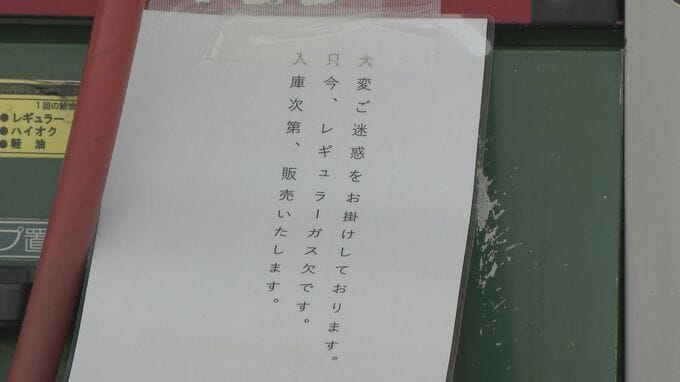 大変ご迷惑をお掛けしております。
只今、レギュラーガス欠です。
入庫次第、販売いたします。
1回の給油
●レギュラー
●ハイオク
●軽 油
プ置